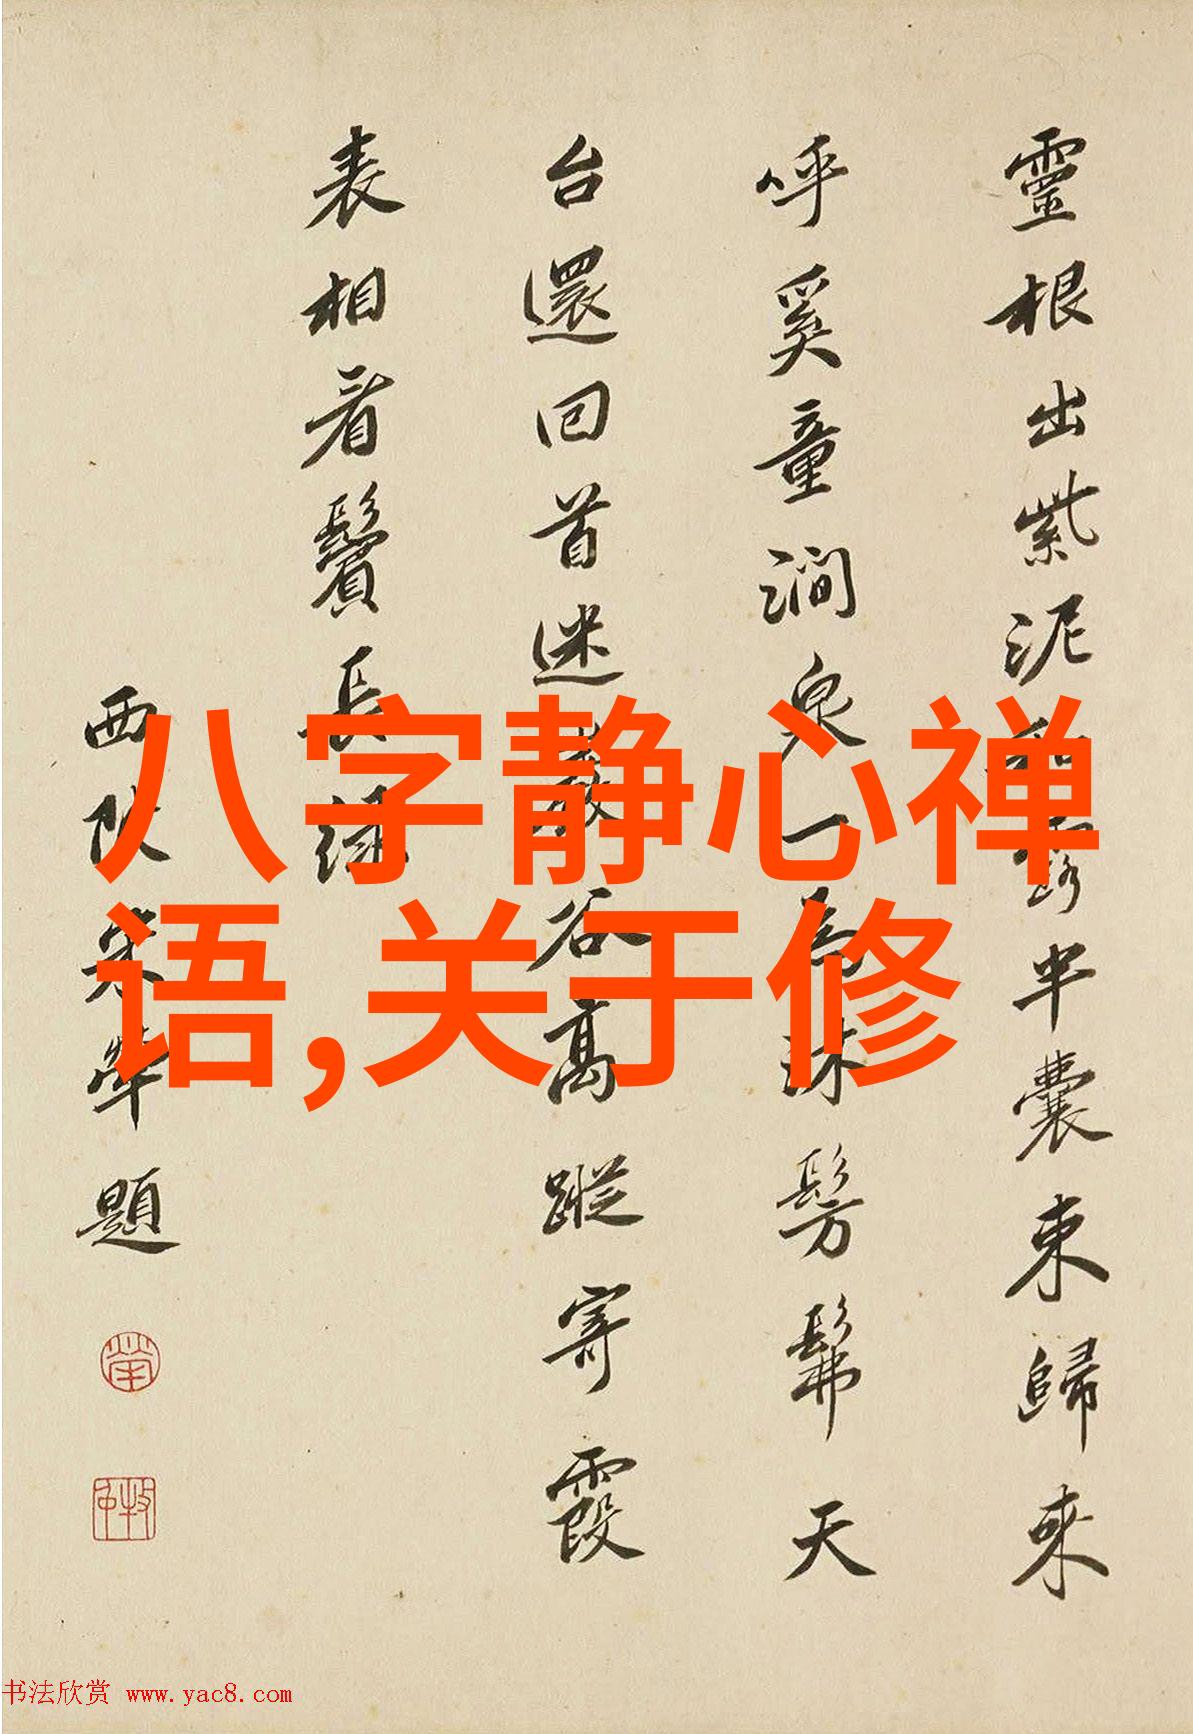 靈根出紫泥和露半囊束歸來
呼奚童澗泉一為沐髣髴天
台還回首迷巖谷高蹤寄霞
表相看鬢長綠
西陂宋犖題
八字静心禅
语,关于修
书法欣赏 www.yac8.com